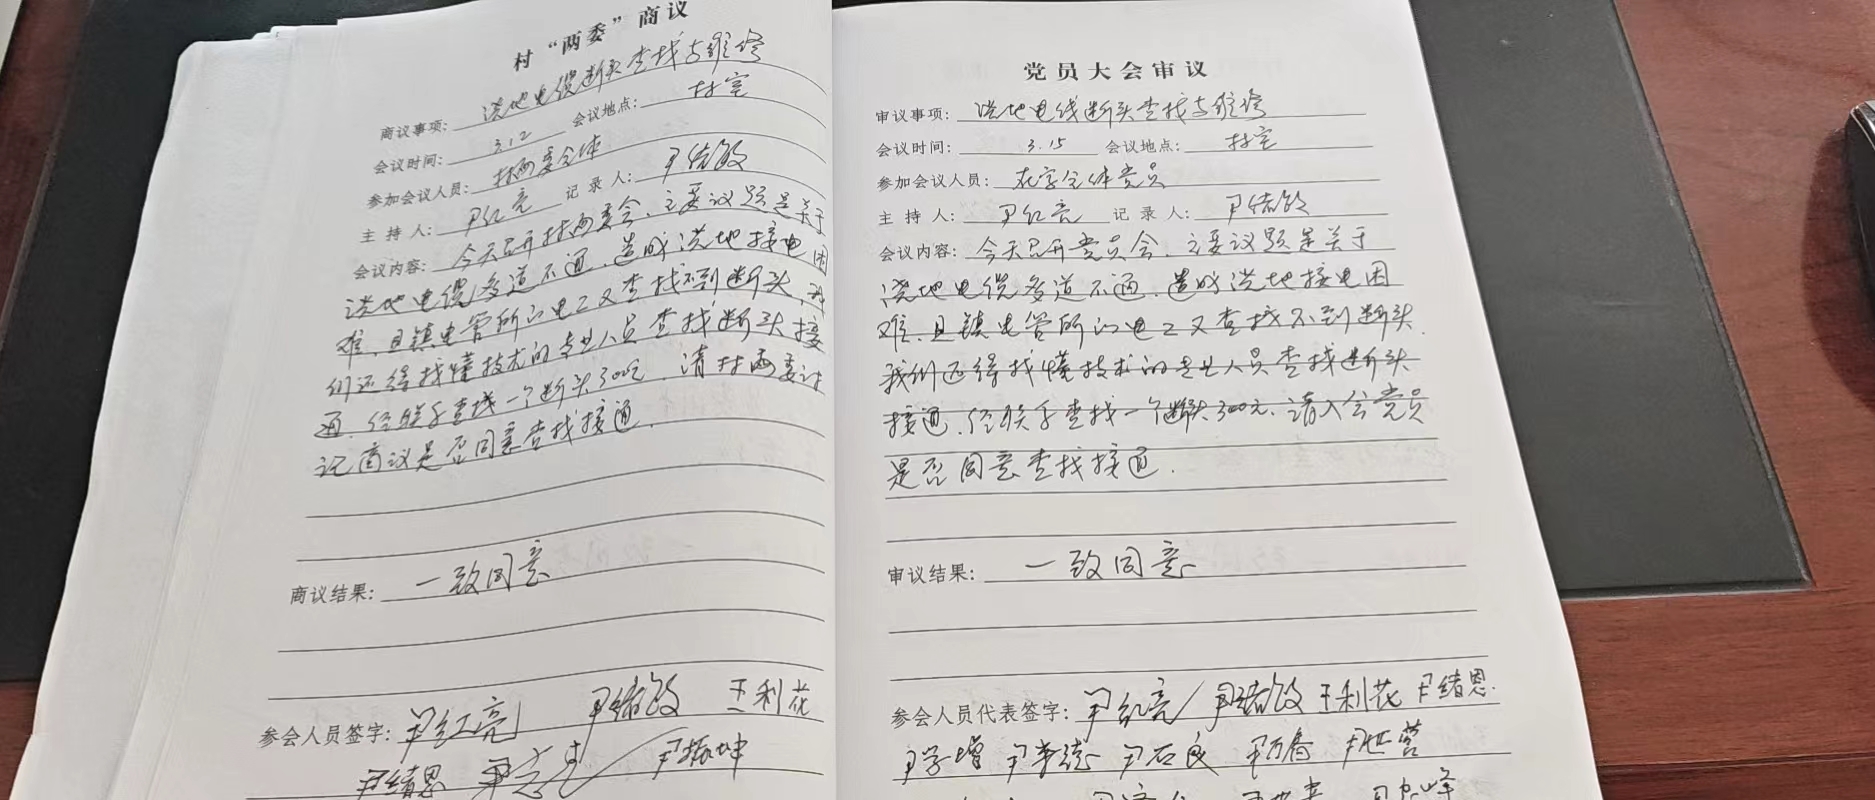 村“两委”商议
商议事项：浇地电缆断头查找与维修
会议时间：3.12 会议地点：村室
参加会议人员：村两委全体
主持人：尹红亮 记录人：尹绪敏
会议内容：今天召开村两委会，主要议题是关于
浇地电缆多道不通，造成浇地接电困
难，且镇电管所的电工又查找不到断头，我
们还得找懂技术的专业人员查找断头接
通，经联系查找一个断头300元，请村两委讨
记商议是否同意查找接通。
商议结果：一致同意
参会人员签字：尹红亮 尹绪敏 王利花
尹绪恩 尹振坤
党员大会审议
审议事项：浇地电线断头查找与维修
会议时间：3.15 会议地点：村室
参加会议人员：在家全体党员
主持人：尹红亮 记录人：尹绪敏
会议内容：今天召开党员会，主要议题是关于
浇地电缆多道不通，造成浇地接电困
难，且镇电管所的电工又查找不到断头，
我们还得找懂技术的专业人员查找断头
接通，经联系查找一个断头300元，请入会党员
是否同意查找接通。
审议结果：一致同意
参会人员代表签字：尹红亮 尹绪敏 王利花 尹绪恩
尹学增 尹石良 尹万春 尹世营